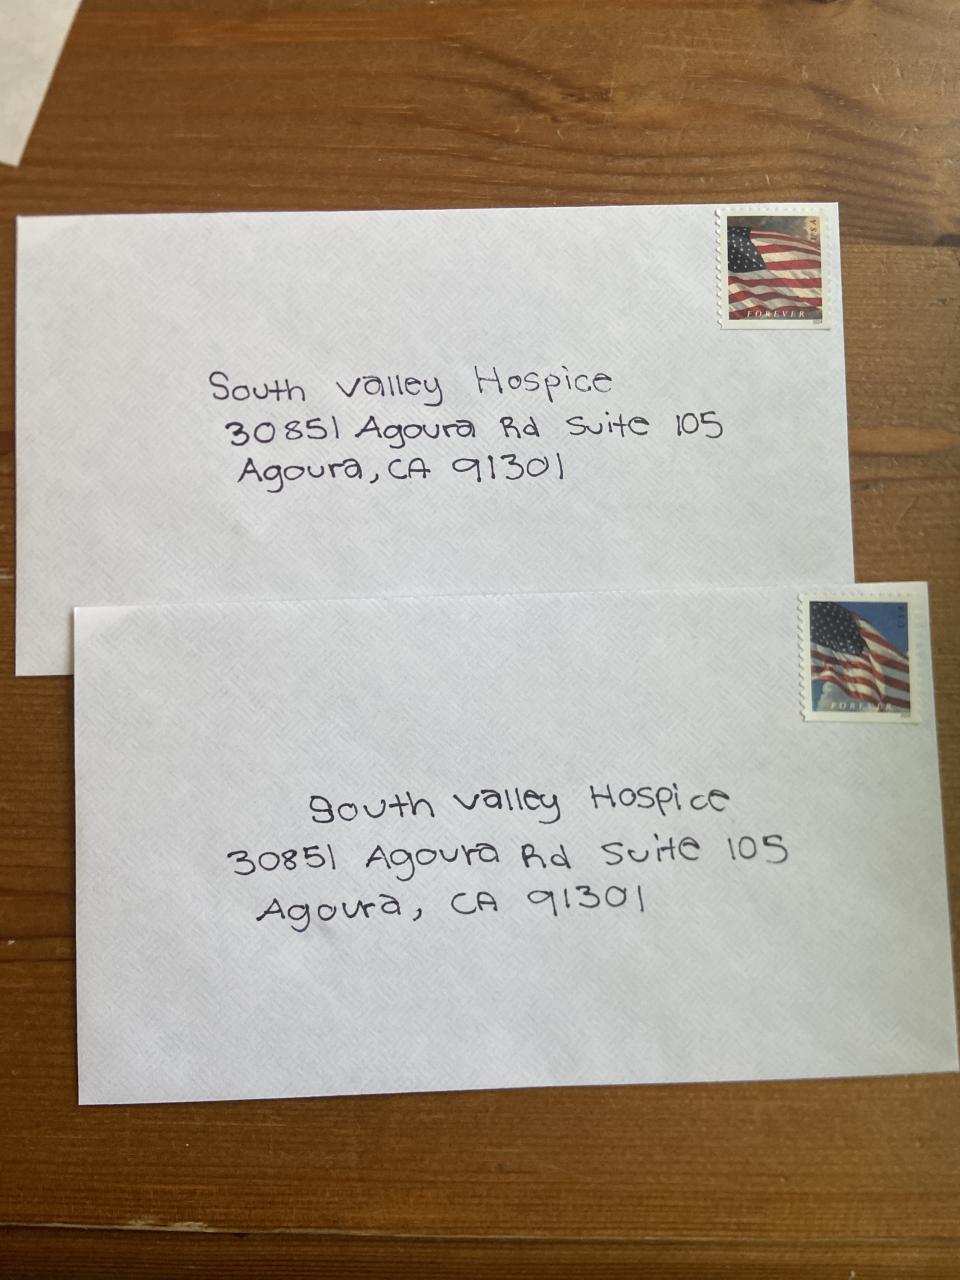 USA
FOREVER
South Valley Hospice
30851 Agoura Rd Suite 105
Agoura, CA 91301
USA
FOREVER
South Valley Hospice
30851 Agoura Rd Suite 105
Agoura, CA 91301